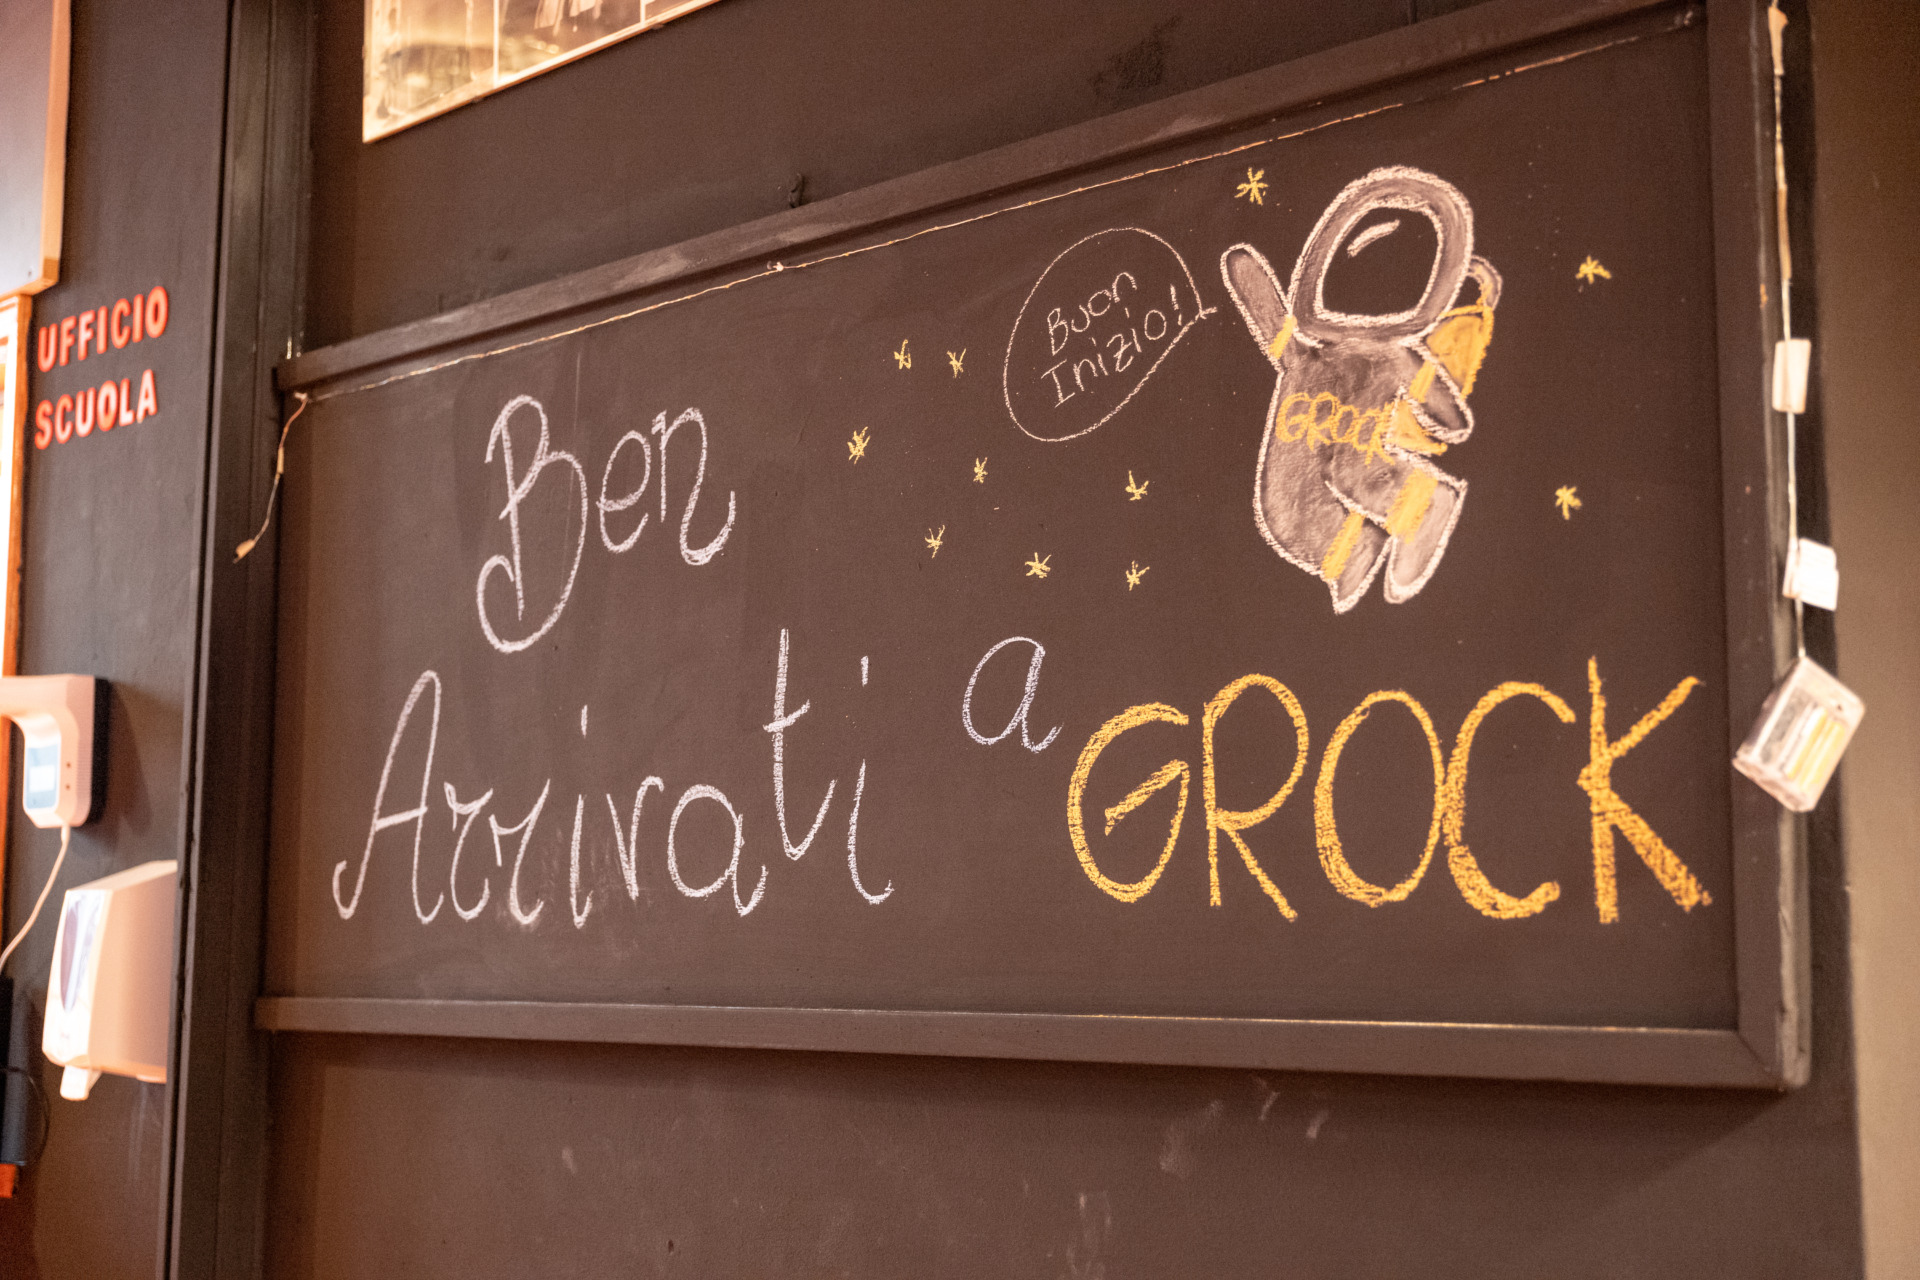 UFFICIO
SCUOLA
Buon
Inizio!
GROCK
Ben
Arrivati a GROCK